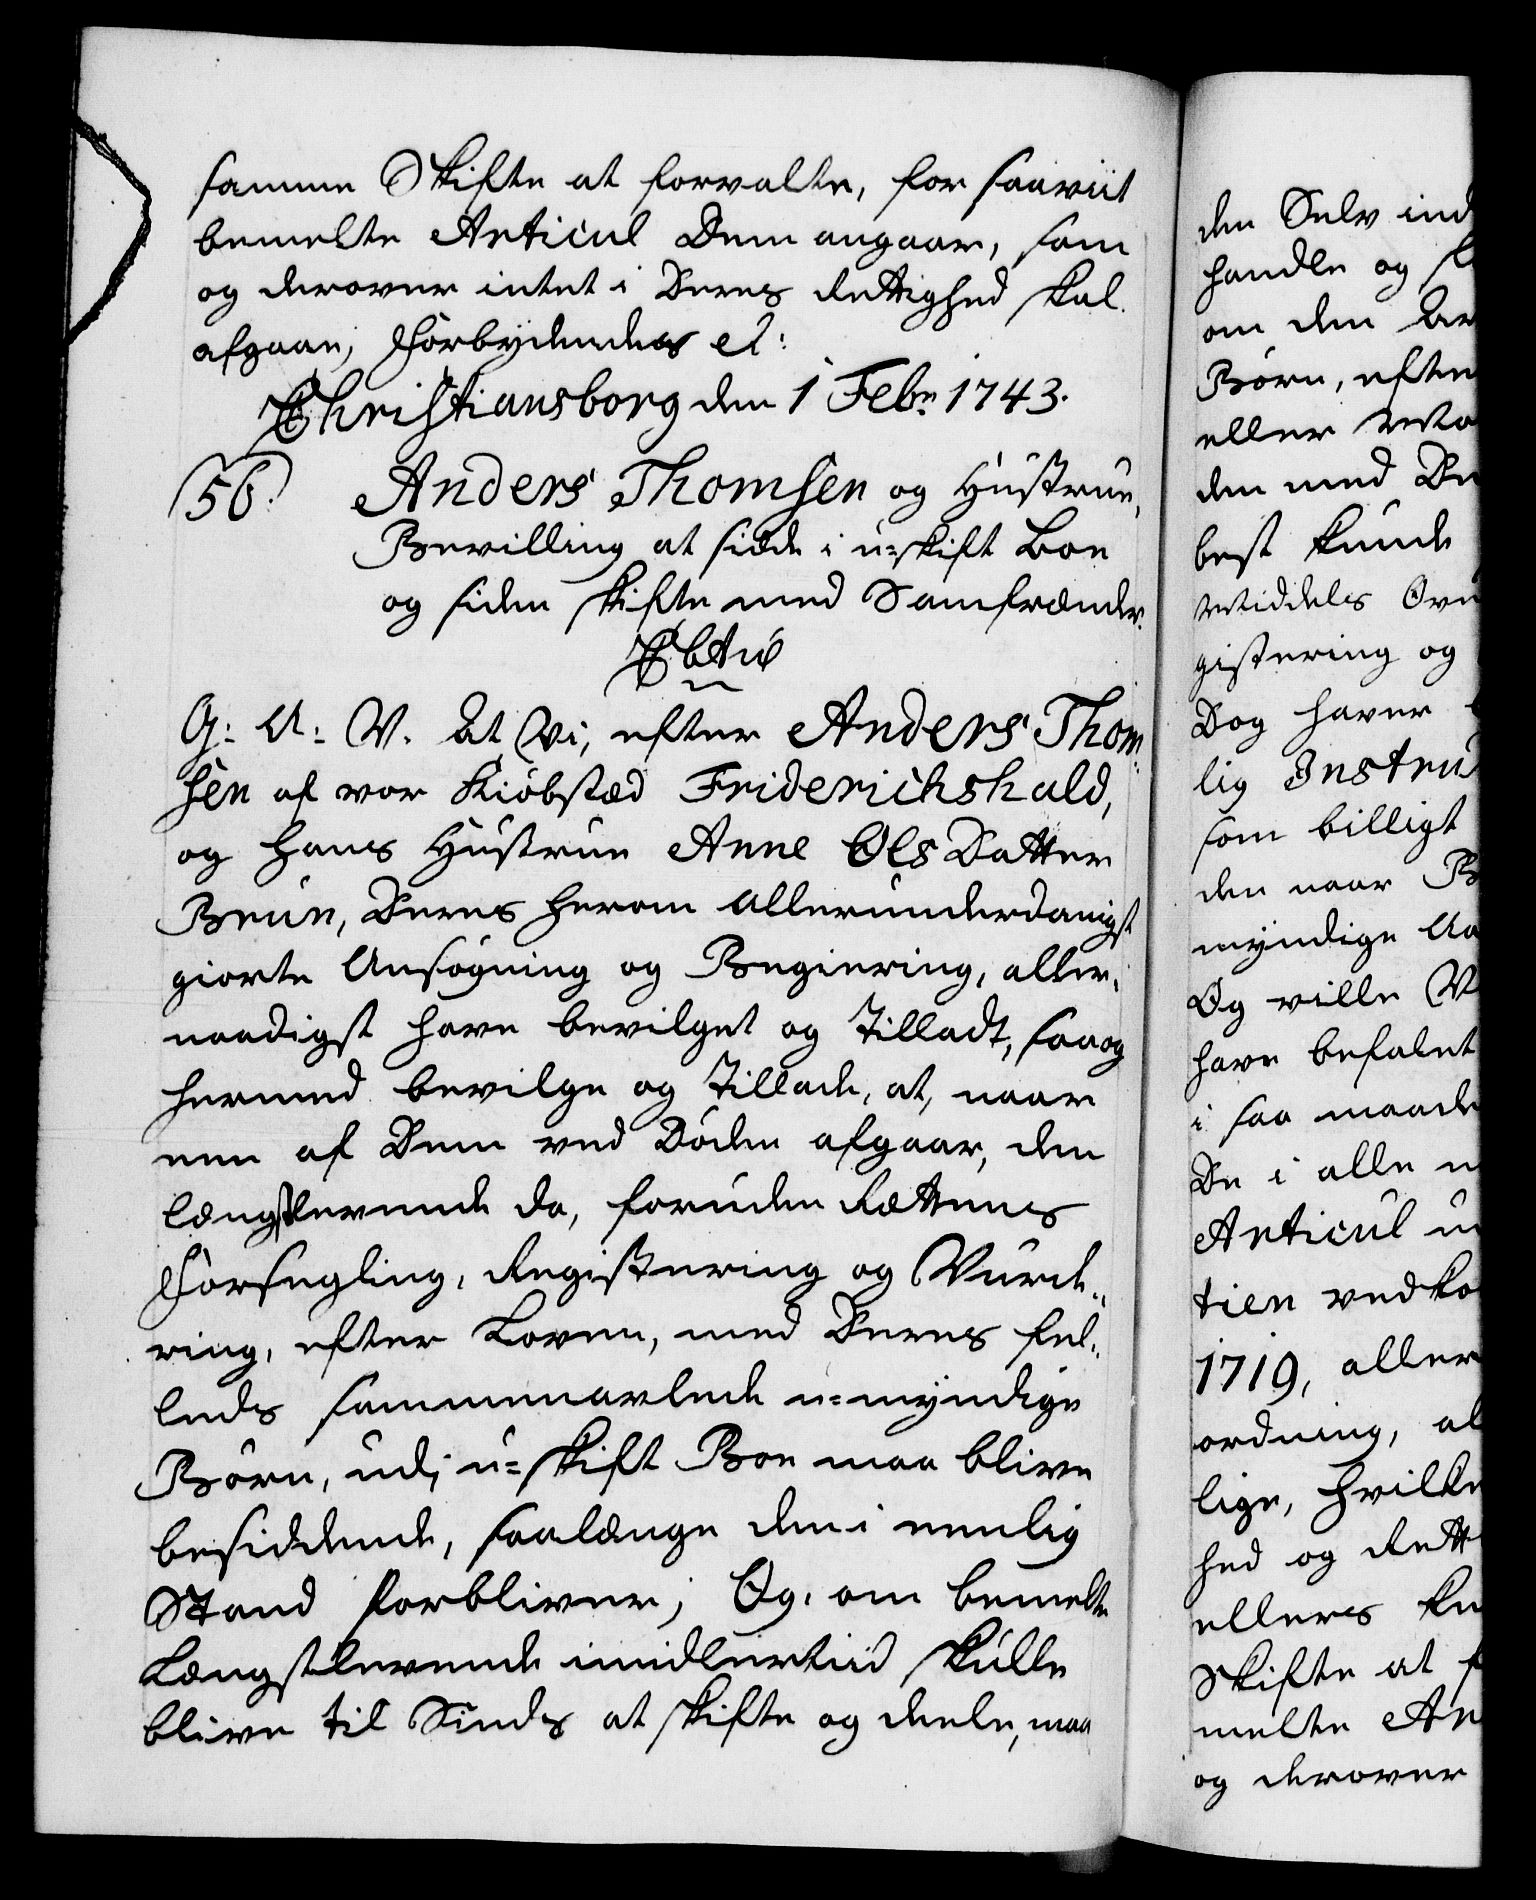 samme Skifte at forvalte, for saaviit
bemelte Articul Dem angaar, som
og derover intet i Deres Rettighed skal
afgaae; Forbydendes etc:
Christiansborg den 1 Febr: 1743.
56. Anders Thomsen og Hustrue,
Bevilling at sidde i u-skift Boe
og siden skifte med Samfrænder.
G: A: V. At Vi, efter Anders Thom-
sen af vor Kiøbstæd Friderichshald,
og hans Hustrue Anne Ols Datter
Brun, Deres herom allerunderdanigst
giorte Ansøgning og Begiering, aller-
naadigst have bevilget og Tilladt, saa og
hermed bevilge og Tillade, at, naar
een af Dem ved Døden afgaar, den
længstlevende da, foruden Rættens
Forsegling, Registering og Vurde-
ring, efter Loven, med Deres fel-
leds sammenavlede u-myndige
Børn, udj u-skift Boe maa blive
besiddende, saalænge den i eenlig
Stand forbliver; Og, om bemelte
Længstlevende imidlertiid skulle
blive til Sinds at skifte og deele, maa
den Selv ind
handle og
om den
Børn, efter
eller
den med
best kunde
Middels
gistering og
Dog haver
lig Instru
som billigt
den naar
myndige
Og ville V
have befalet
i saa maade
De i alle
Articul
tien vedko
1719, aller
ordning, al
lige, hvilke
hed og Rett
ellers
Skifte at f
melte Ar
og derover